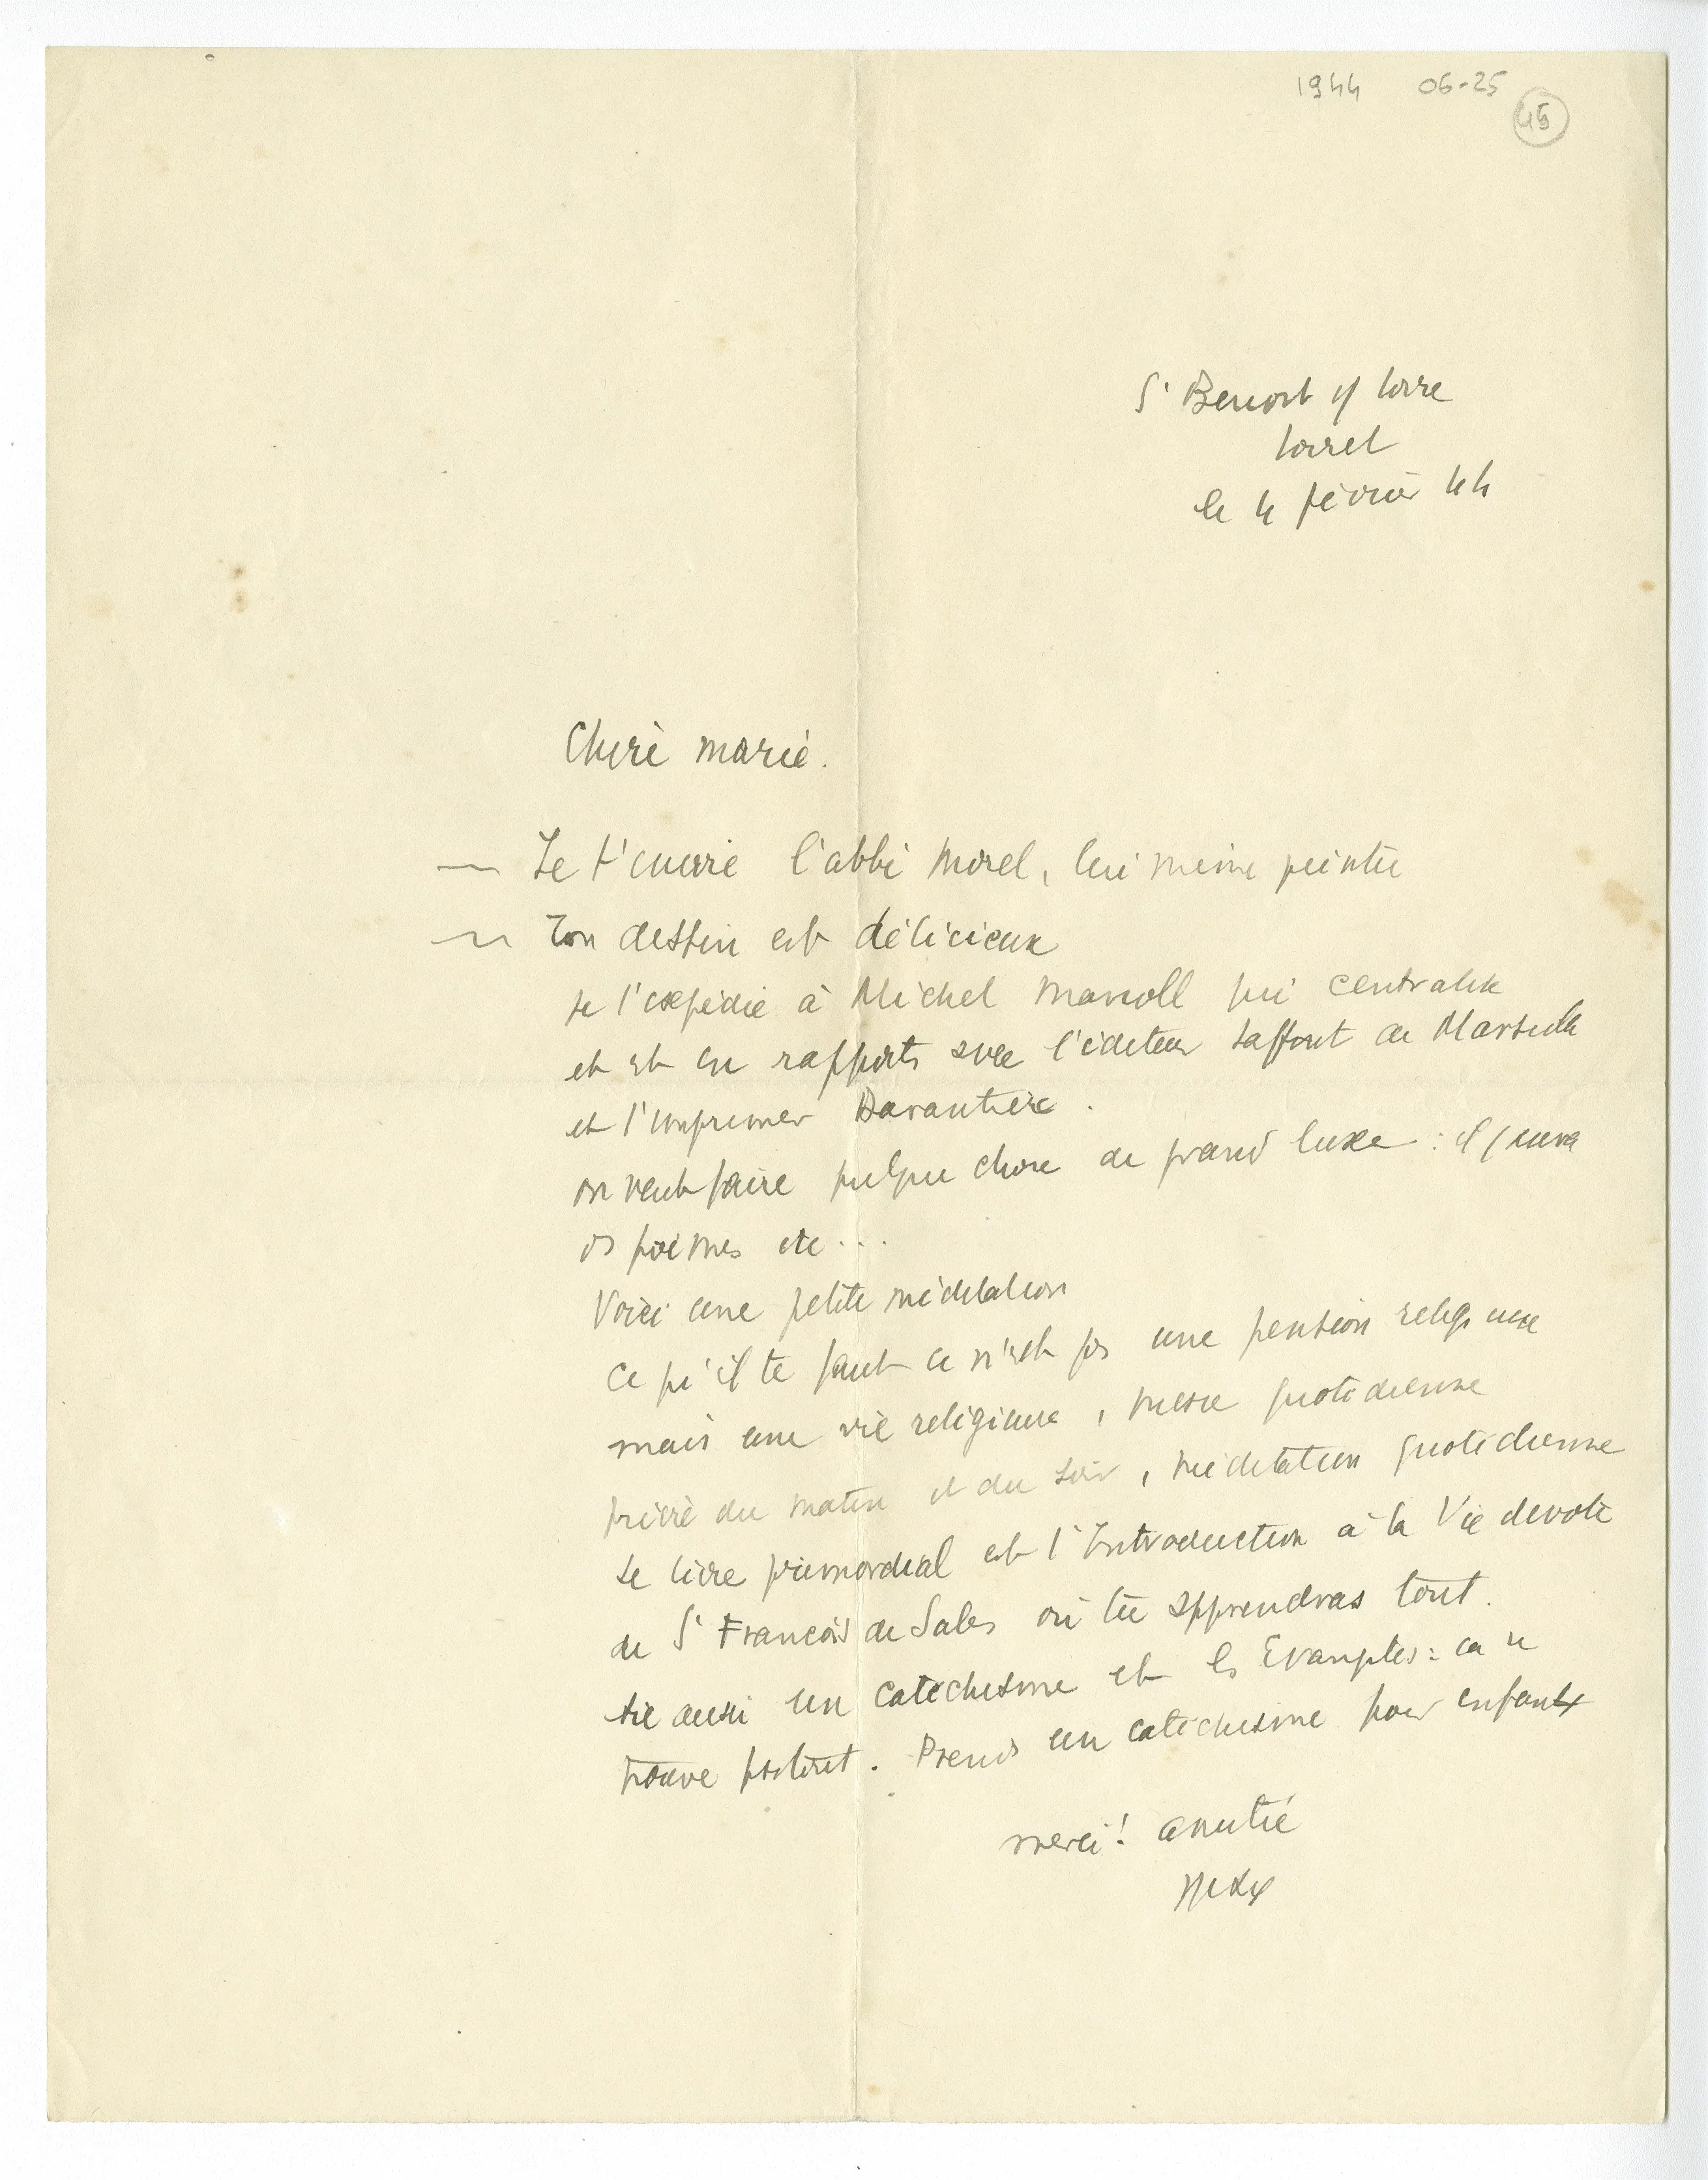 1944 06-25
45
St Benoit s/ Loire
Loiret
le 4 février 44
Chère Marie.
— Je t'envoie l'abbé Morel, lui même peintre
— Ton dessin est délicieux
Je l'expédie à Michel Manoll qui centralise
et est en rapports avec l'éditeur Laffont de Marseille
et l'imprimeur Darantière.
on veut faire quelque chose de grand luxe : il y aura
des poèmes etc...
Voici une petite méditation
Ce qu'il te faut ce n'est pas une pension religieuse
mais une vie religieuse, messe quotidienne
prière du matin et du soir, méditation quotidienne
Le livre primordial est l'Introduction à la Vie dévote
de St François de Sales où tu apprendras tout.
Lis aussi un catéchisme et les Evangiles : ca se
trouve partout. Prends un catéchisme pour enfants
merci! amitié
Max